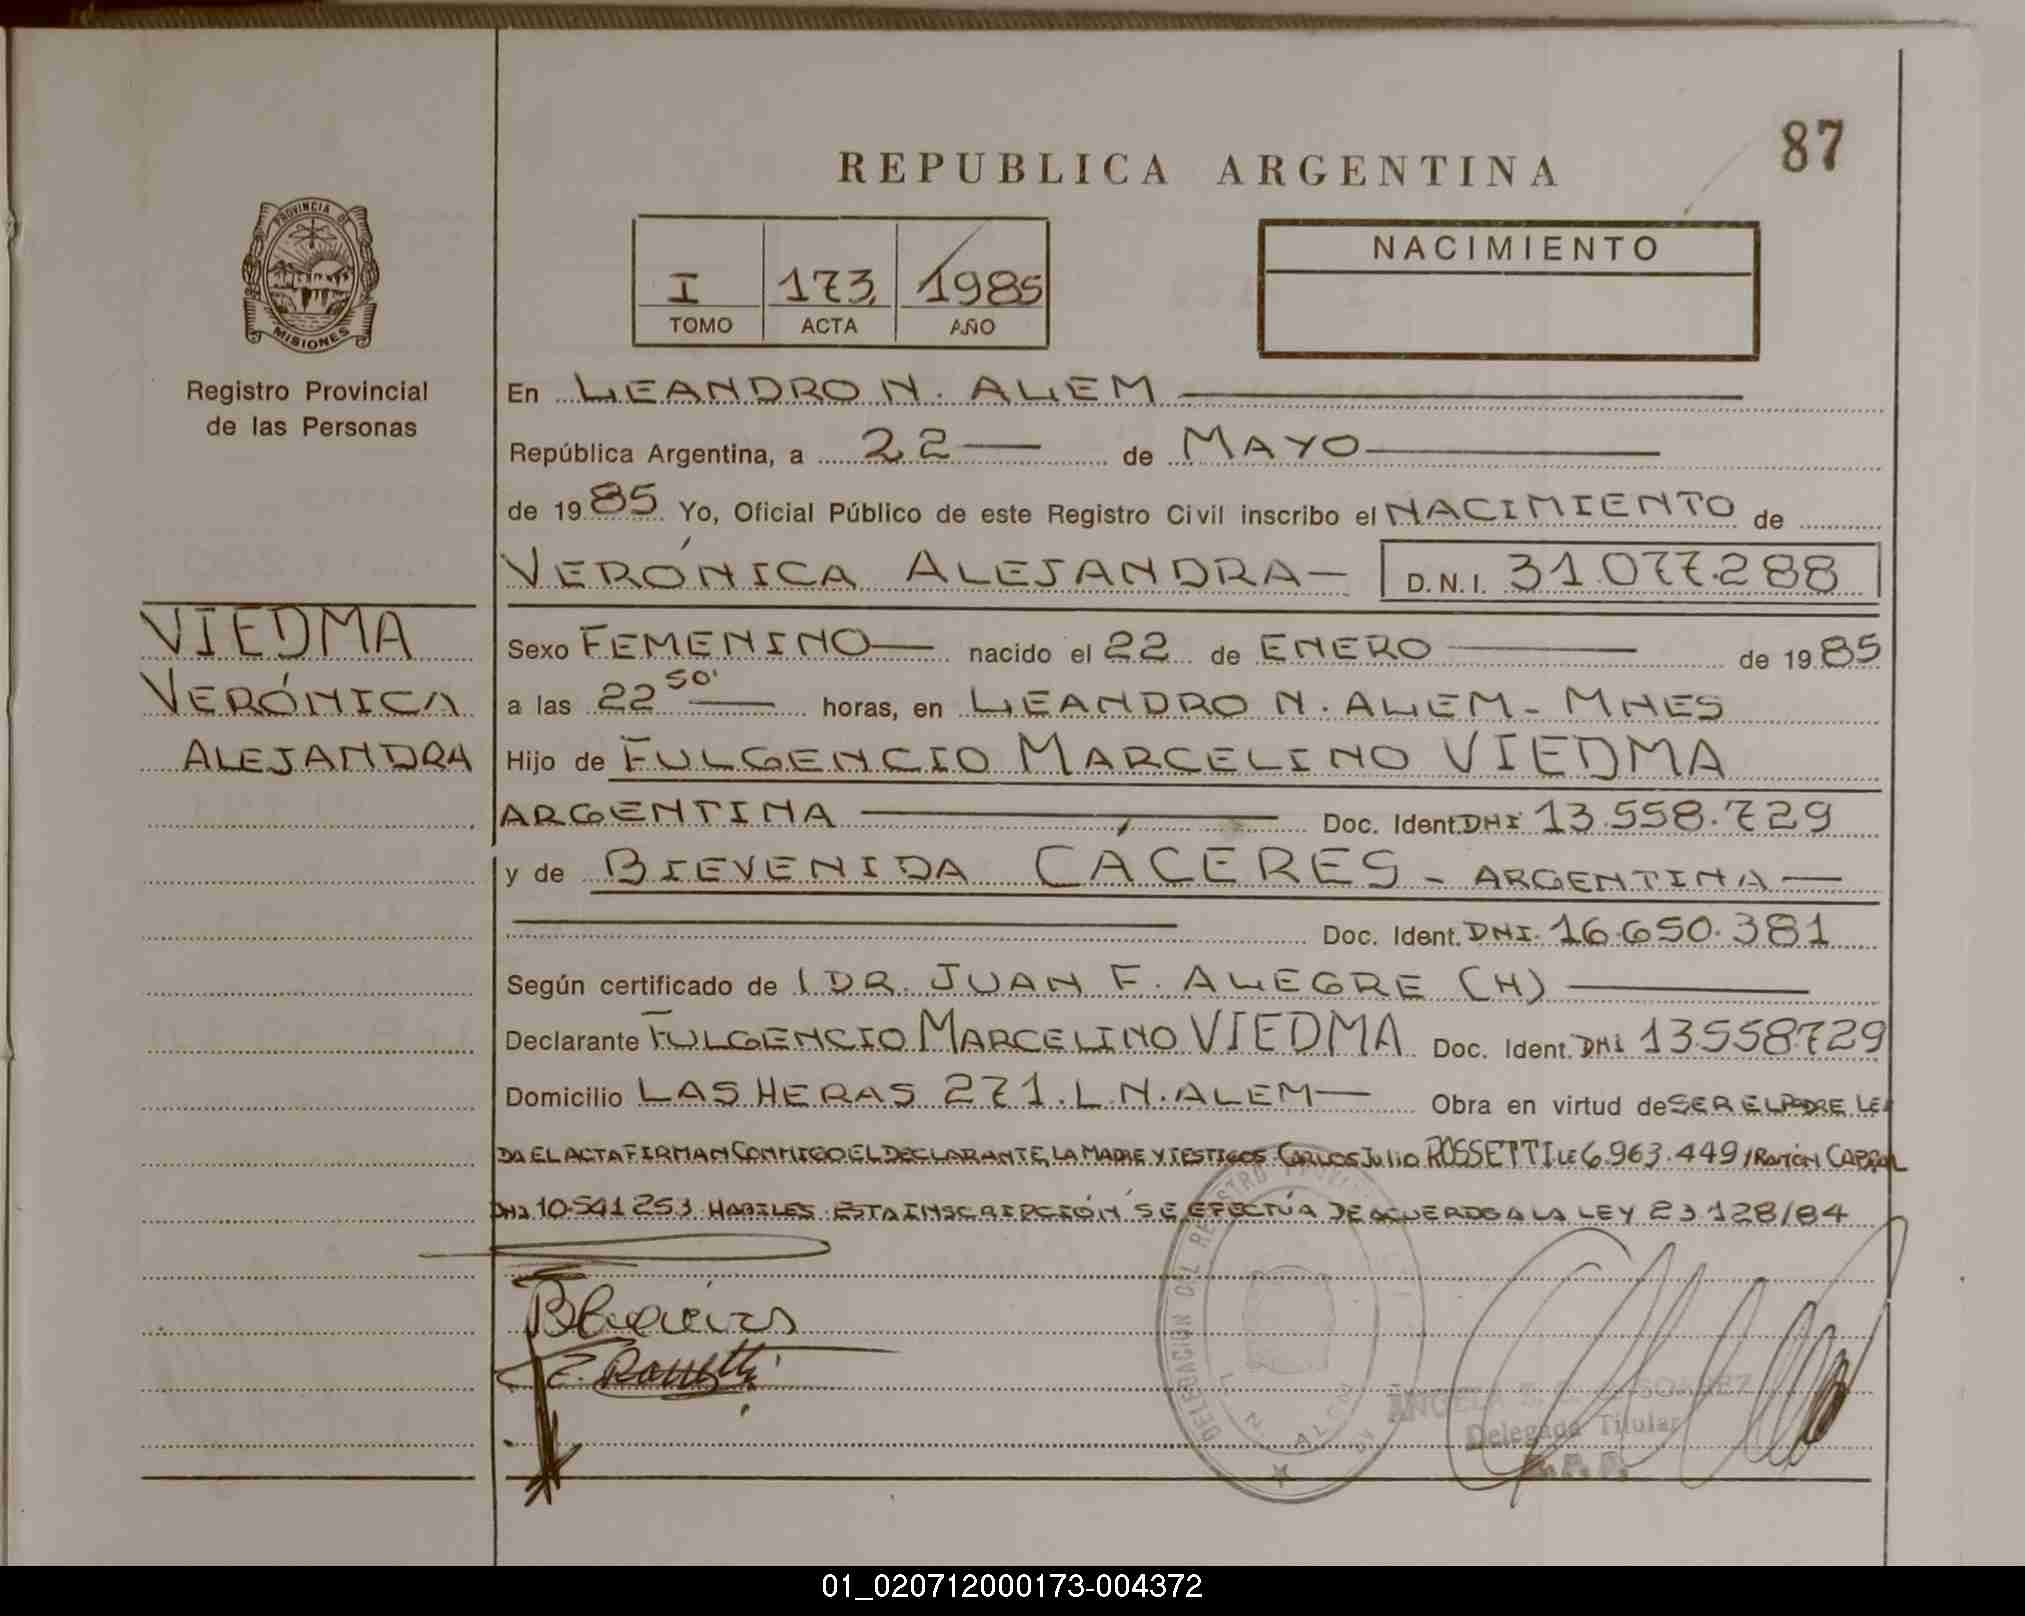 87
REPUBLICA ARGENTINA
PROVINCIA D
MISIONES
Registro Provincial
de las Personas
I 173 1985
TOMO ACTA AÑO
NACIMIENTO
En LEANDRO N. ALEM
República Argentina, a 22 de MAYO
de 1985 Yo, Oficial Público de este Registro Civil inscribo el NACIMIENTO de
VERÓNICA ALEJANDRA D.N.I. 31.077.288
VIEDMA
VERÓNICA
ALEJANDRA
Sexo FEMENINO nacido el 22 de ENERO de 1985
a las 22 50' horas, en LEANDRO N. ALEM - MNES
Hijo de FULGENCIO MARCELINO VIEDMA
ARGENTINA Doc. Ident. DNI 13.558.729
y de BIEVENIDA CÁCERES - ARGENTINA
Doc. Ident. DNI. 16.650.381
Según certificado de l DR. JUAN F. ALEGRE (H)
Declarante FULGENCIO MARCELINO VIEDMA Doc. Ident. DNI 13558729
Domicilio LAS HERAS 271. L.N. ALEM Obra en virtud de SER EL PADRE LEI
DA EL ACTA FIRMAN CONMIGO EL DECLARANTE, LA MADRE Y TESTIGOS CARLOS JULIO ROSSETTI LE 6.963.449 / RAMÓN CABRAL
DNI 10.541 253 HABILES. ESTA INSCRIPCIÓN SE EFECTÚA DE ACUERDO A LA LEY 23 128/84
DELEGACION DEL REGISTRO
L. N. ALEM
ANGELA
Delegada Titular
R. P. P.
01_020712000173-004372